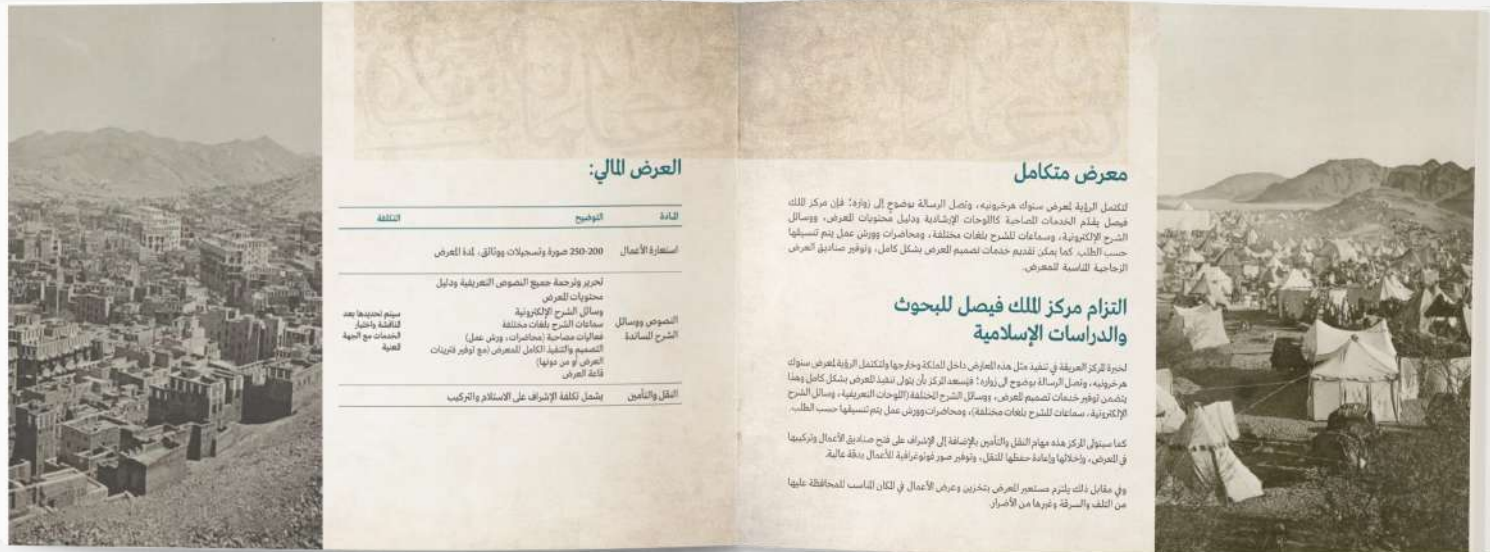 معرض متكامل
لتكتمل الرؤية لمعرض سنوك هرخرونيه، وتصل الرسالة بوضوح إلى زواره؛ فإن مركز الملك
فيصل يقدّم الخدمات المصاحبة كاللوحات الإرشادية ودليل محتويات المعرض، ووسائل
الشرح الإلكترونية، وسماعات للشرح بلغات مختلفة، ومحاضرات وورش عمل يتم تنسيقها
حسب الطلب. كما يمكن تقديم خدمات تصميم المعرض بشكل كامل، وتوفير صناديق العرض
الزجاجية المناسبة للمعرض.
التزام مركز الملك فيصل للبحوث
والدراسات الإسلامية
لخبرة المركز العريقة في تنفيذ مثل هذه المعارض داخل المملكة وخارجها ولتكتمل الرؤية لمعرض سنوك
هرخرونيه، وتصل الرسالة بوضوح إلى زواره؛ فيُسعد المركز بأن يتولى تنفيذ المعرض بشكل كامل وهذا
يتضمن توفير خدمات تصميم المعرض، ووسائل الشرح المختلفة (اللوحات التعريفية، وسائل الشرح
الإلكترونية، سماعات للشرح بلغات مختلفة)، ومحاضرات وورش عمل يتم تنسيقها حسب الطلب.
كما سيتولى المركز هذه مهام النقل والتأمين بالإضافة إلى الإشراف على فتح صناديق الأعمال وتركيبها
في المعرض، وإخلائها وإعادة حفظها للنقل، وتوفير صور فوتوغرافية للأعمال بدقة عالية.
وفي مقابل ذلك يلتزم مستعير المعرض بتخزين وعرض الأعمال في المكان المناسب للمحافظة عليها
من التلف والسرقة وغيرها من الأضرار.
العرض المالي:
المادة التوضيح التكلفة
استعارة الأعمال 200-250 صورة وتسجيلات ووثائق، لمدة المعرض
النصوص ووسائل
الشرح المساندة
تحرير وترجمة جميع النصوص التعريفية ودليل
محتويات المعرض
وسائل الشرح الإلكترونية
سماعات الشرح بلغات مختلفة
فعاليات مصاحبة (محاضرات، ورش عمل)
التصميم والتنفيذ الكامل للمعرض (مع توفير فترينات
العرض أو من دونها)
قاعة العرض
سيتم تحديدها بعد
المناقشة واختيار
الخدمات مع الجهة
المعنية
النقل والتأمين يشمل تكلفة الإشراف على الاستلام والتركيب